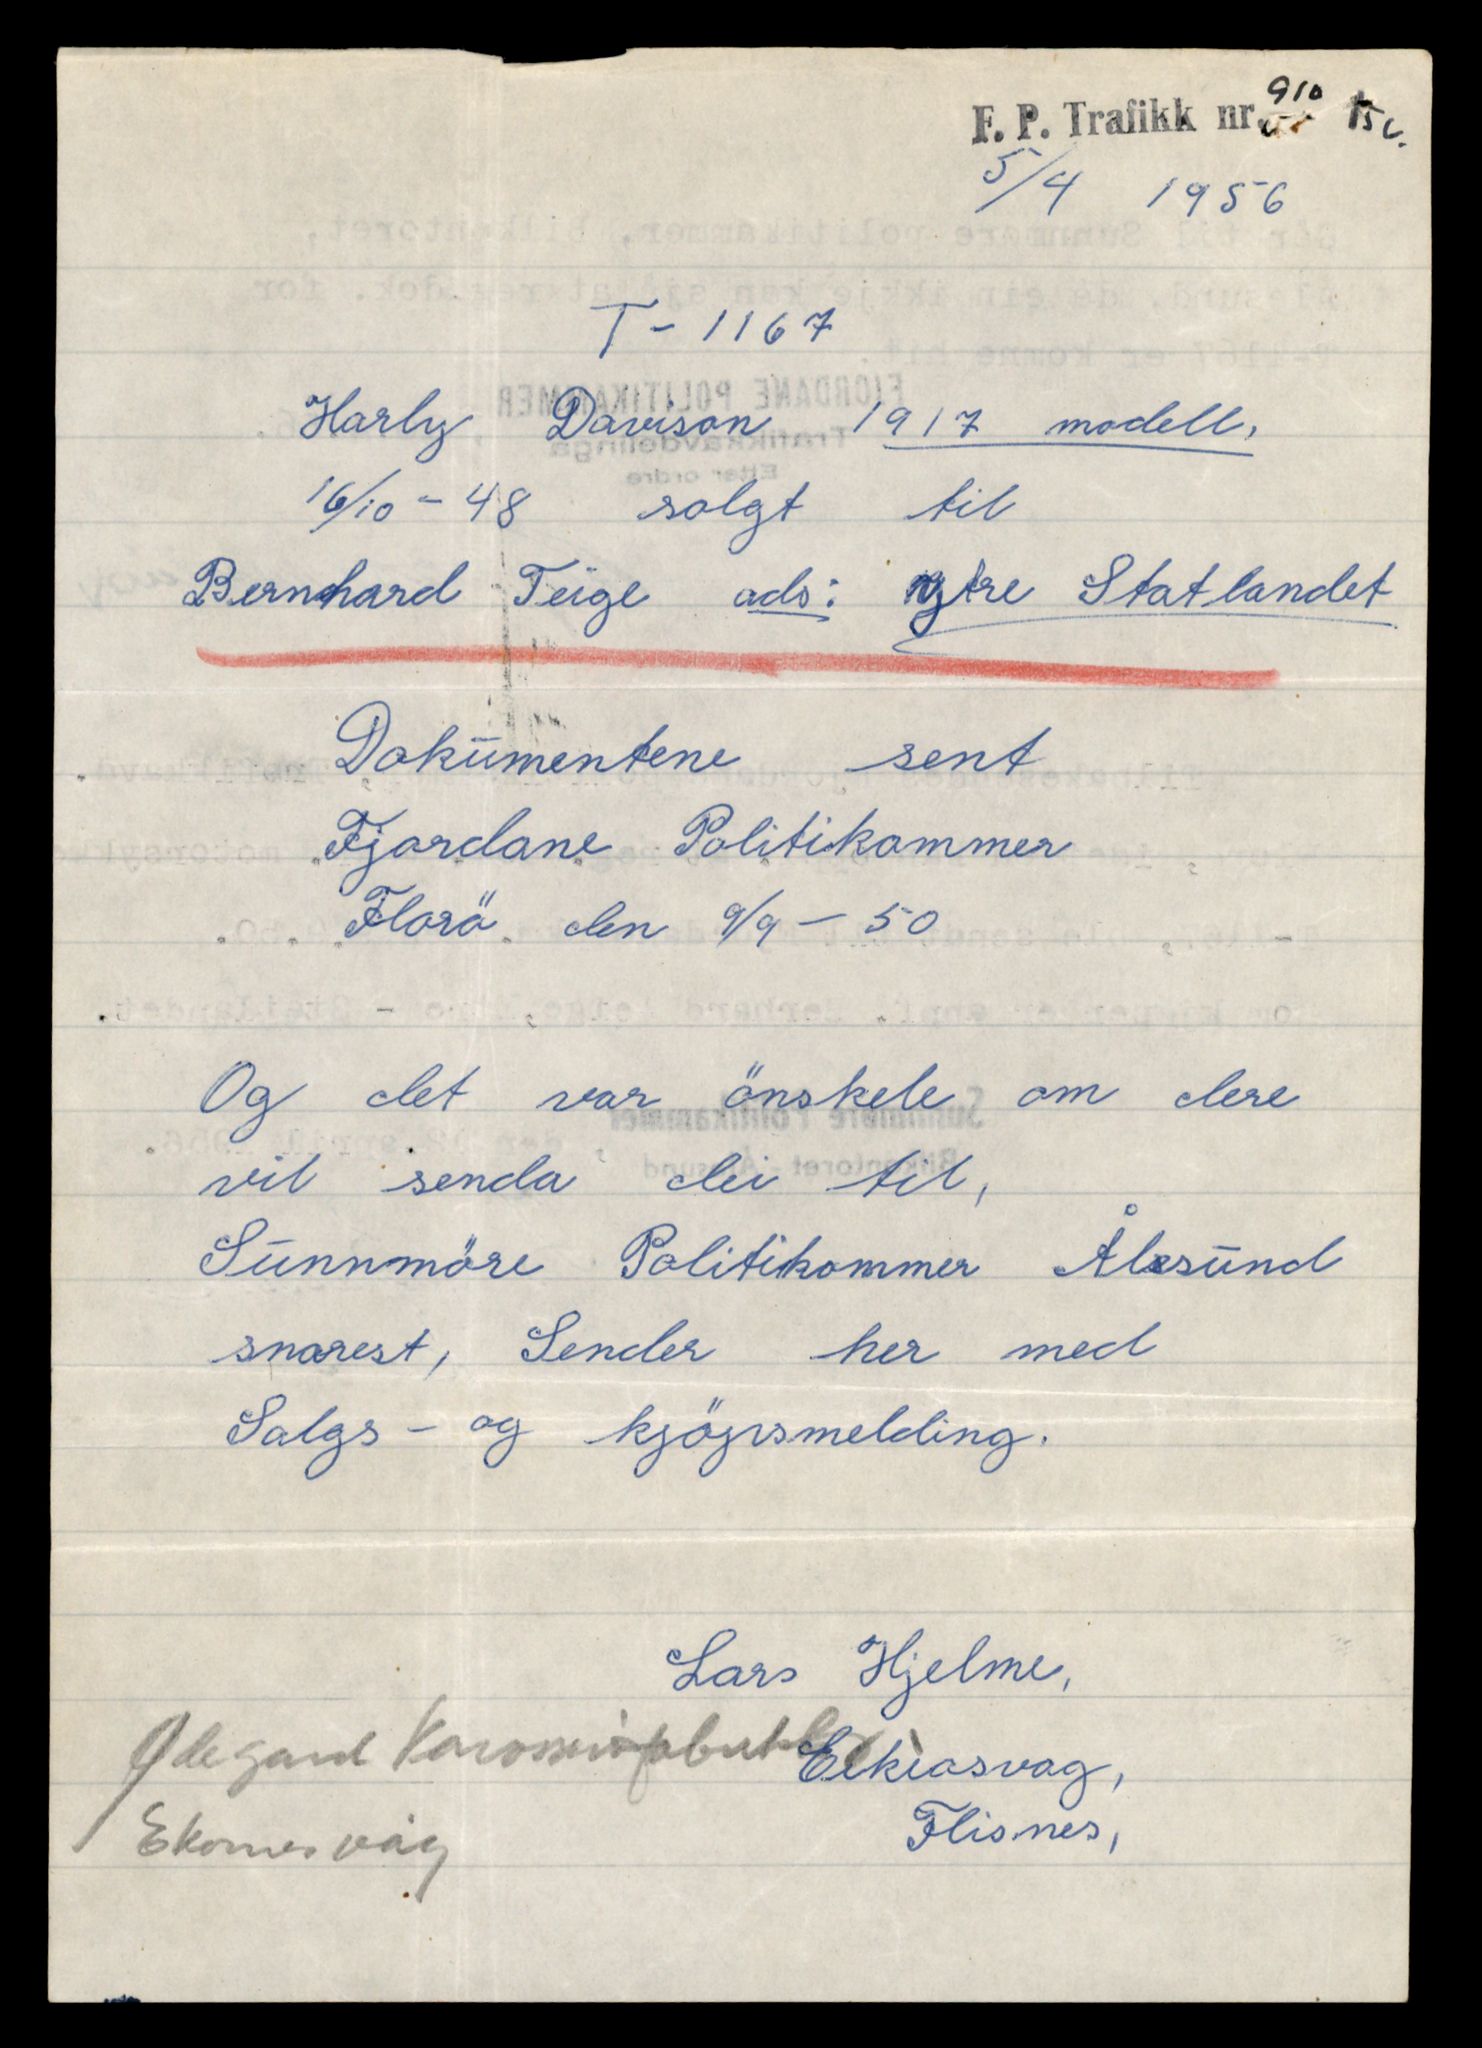 F. P. Trafikk nr. 910
5/4 1956
T - 1167
Harly Davison 1917 modell,
16/10 - 48 solgt til
Bernhard Teige ads: ytre Statlandet
Dokumentene sent
Fjordane Politikammer
Florö den 9/9 - 50
Og det var önskele om dere
vil senda dei til,
Sunnmöre Politikammer Ålesund
snarest, Sender her med
Salgs - og kjöpsmelding.
Lars Hjelme,
Eikiosvag,
Flisnes,
Ødegard Karosserifabrikk
Ekornesvåg